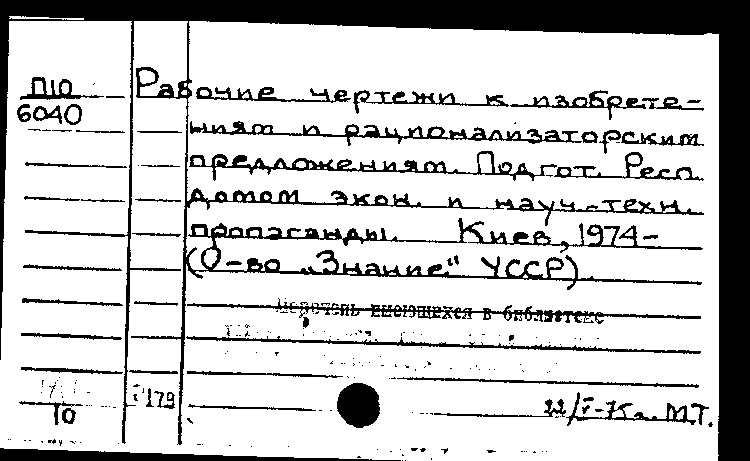 П10
6040
Рабочие чертежи к изобрете-
ниям и рационализаторским
предложениям. Подгот. Респ.
домом экон. и науч.-техн.
пропаганды. Киев, 1974-
(О-во „Знание" УССР).
Перечень имеющихся в библиотеке
179
10
22/V-75г. М.Т.